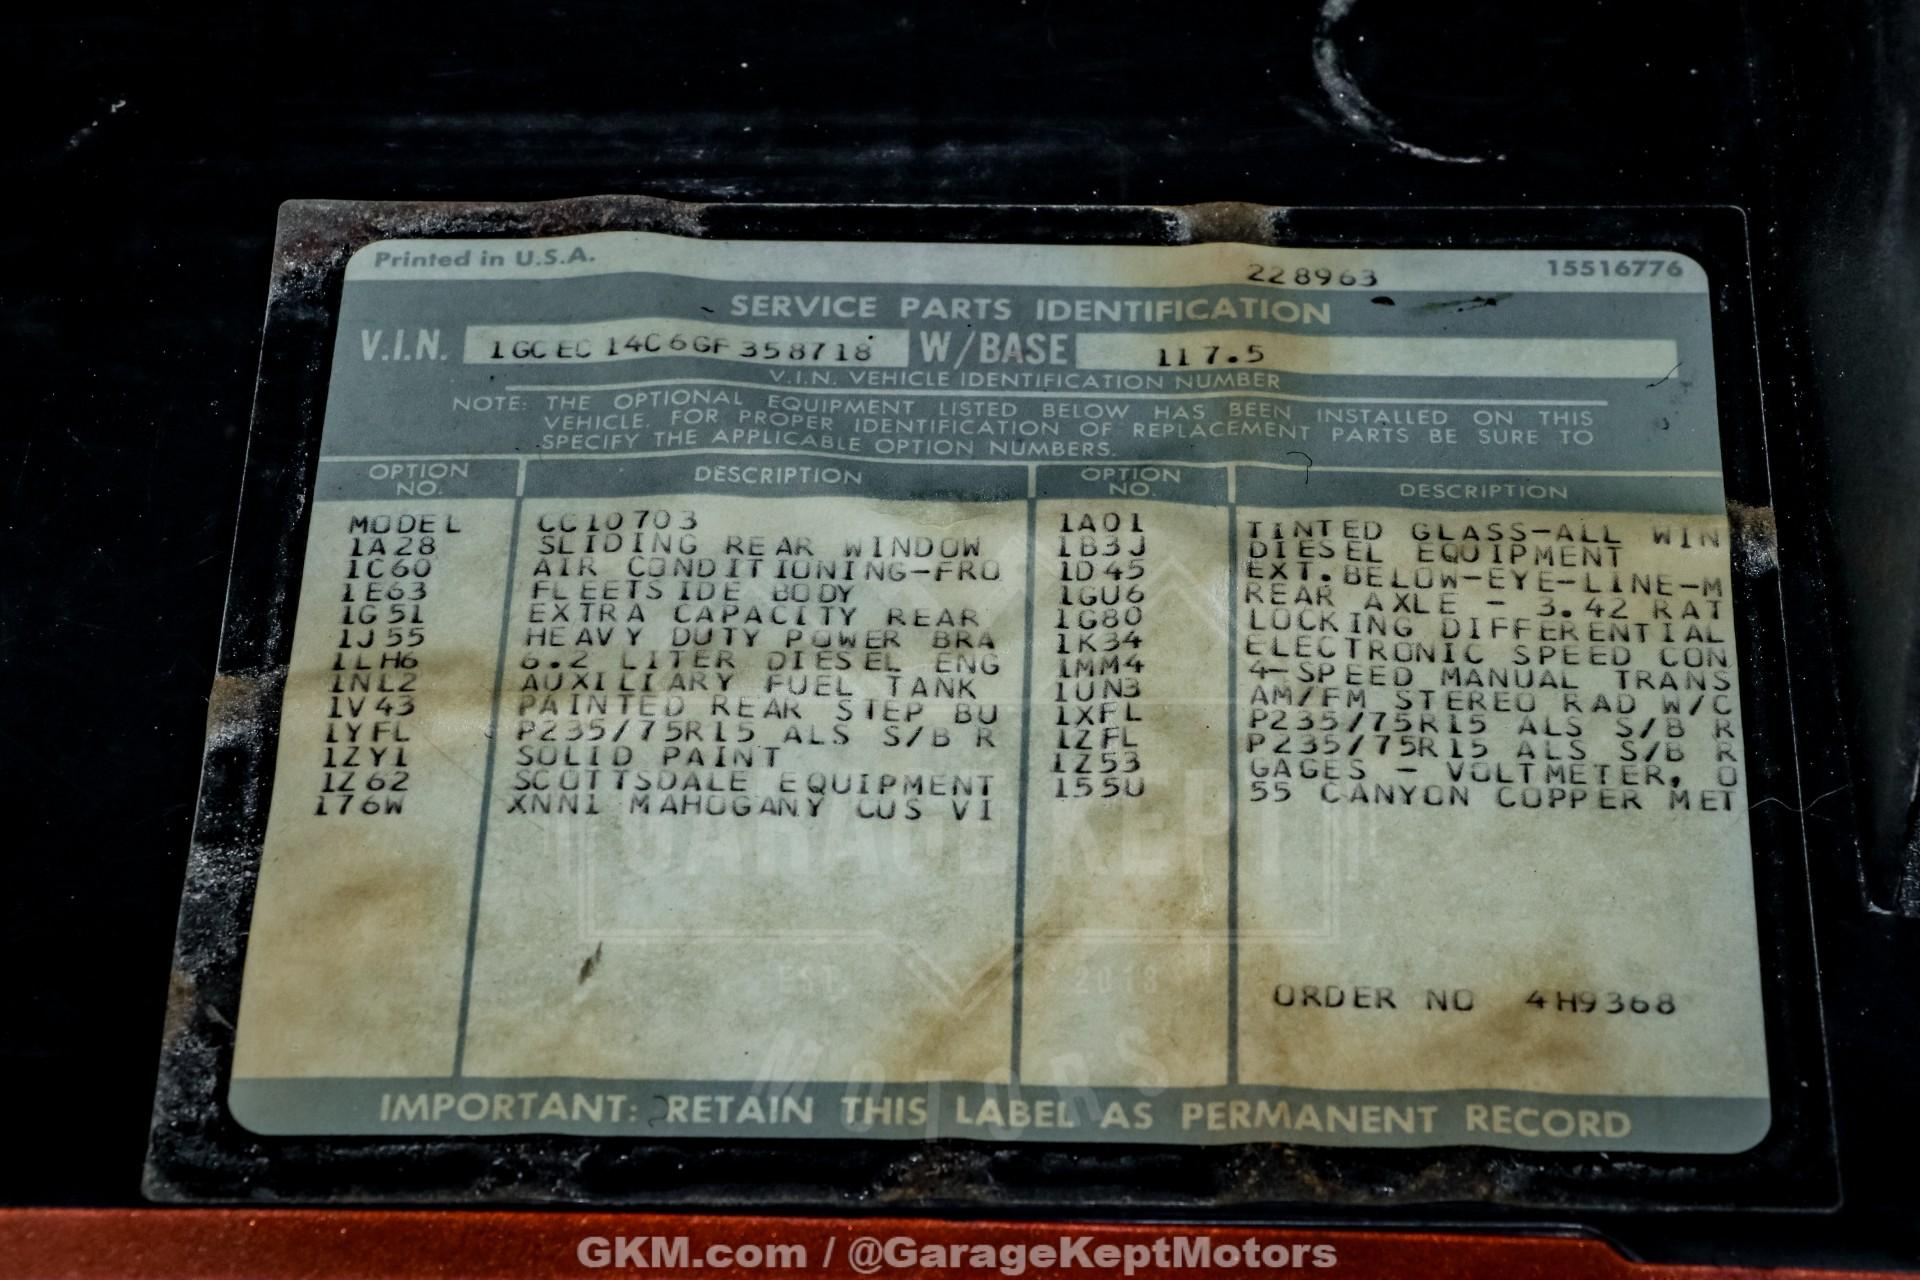 Printed in U.S.A.
228963
15516776
SERVICE PARTS IDENTIFICATION
V.I.N. 1GCEC14C6GF358718 W/BASE 117.5
V.I.N. VEHICLE IDENTIFICATION NUMBER
NOTE: THE OPTIONAL EQUIPMENT LISTED BELOW HAS BEEN INSTALLED ON THIS
VEHICLE. FOR PROPER IDENTIFICATION OF REPLACEMENT PARTS BE SURE TO
SPECIFY THE APPLICABLE OPTION NUMBERS.
OPTION NO. DESCRIPTION OPTION NO. DESCRIPTION
MODEL CC10703 1A01 TINTED GLASS-ALL WIN
1A28 SLIDING REAR WINDOW 1B3J DIESEL EQUIPMENT
1C60 AIR CONDITIONING-FRO 1D45 EXT.BELOW-EYE-LINE-M
1E63 FLEETSIDE BODY 1GU6 REAR AXLE - 3.42 RAT
1G51 EXTRA CAPACITY REAR 1G80 LOCKING DIFFERENTIAL
1J55 HEAVY DUTY POWER BRA 1K34 ELECTRONIC SPEED CON
1LH6 6.2 LITER DIESEL ENG 1MM4 4-SPEED MANUAL TRANS
1NL2 AUXILIARY FUEL TANK 1UN3 AM/FM STEREO RAD W/C
1V43 PAINTED REAR STEP BU 1XFL P235/75R15 ALS S/B R
1YFL P235/75R15 ALS S/B R 1ZFL P235/75R15 ALS S/B R
1ZY1 SOLID PAINT 1Z53 GAGES - VOLTMETER, O
1Z62 SCOTTSDALE EQUIPMENT 155U 55 CANYON COPPER MET
176W XNN1 MAHOGANY CUS VI
GARAGE KEPT
EST. 2013
MOTORS
ORDER NO 4H9368
IMPORTANT: RETAIN THIS LABEL AS PERMANENT RECORD
GKM.com / @GarageKeptMotors